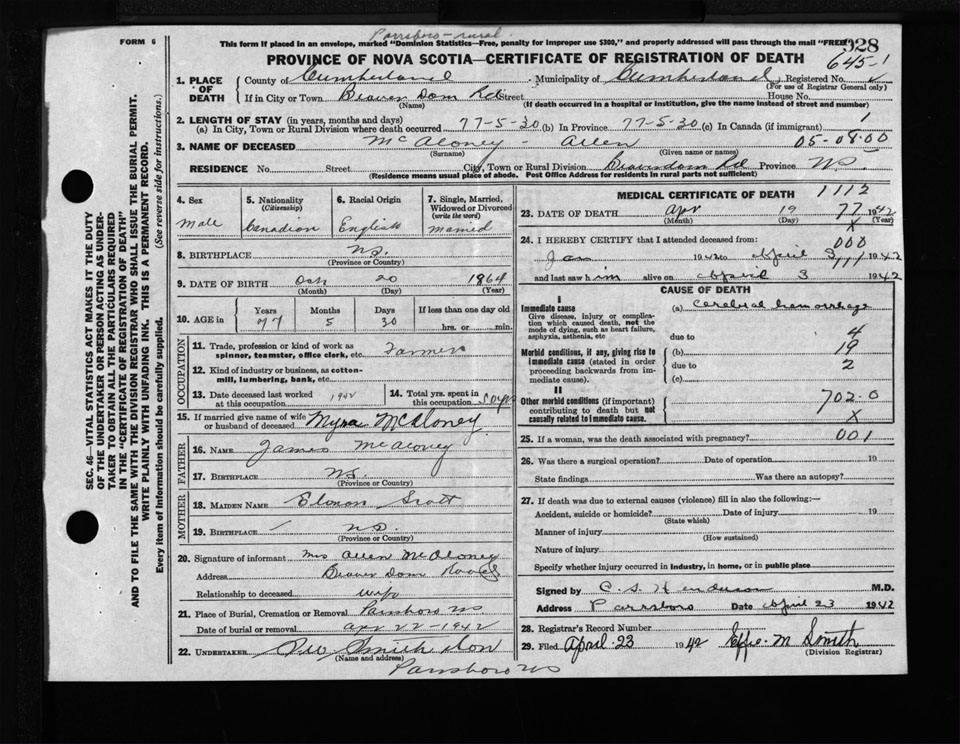 Parrsboro-rural.
FORM 6
This form if placed in an envelope, marked "Dominion Statistics—Free, penalty for improper use $300," and properly addressed will pass through the mail "FREE"
928
645-1
PROVINCE OF NOVA SCOTIA—CERTIFICATE OF REGISTRATION OF DEATH
1. PLACE OF DEATH County of Cumberland Municipality of Cumberland Registered No.
(For use of Registrar General only)
If in City or Town Beaver Dam Rd Street House No.
(Name) (If death occurred in a hospital or institution, give the name instead of street and number)
2. LENGTH OF STAY (in years, months and days)
(a) In City, Town or Rural Division where death occurred 77-5-30 (b) In Province 77-5-30 (c) In Canada (if immigrant) 1
3. NAME OF DECEASED McAloney - Allen 05-08.00
(Surname) (Given name or names)
RESIDENCE No. Street City, Town or Rural Division Beaverdam Rd Province N.S.
(Residence means usual place of abode. Post Office Address for residents in rural parts not sufficient)
4. Sex Male
5. Nationality (Citizenship) Canadian
6. Racial Origin English
7. Single, Married, Widowed or Divorced (write the word) Married
8. BIRTHPLACE N.S.
(Province or Country)
9. DATE OF BIRTH Oct 20 1864
(Month) (Day) (Year)
10. AGE in Years Months Days If less than one day old
77 5 30 hrs. or min.
OCCUPATION
11. Trade, profession or kind of work as spinner, teamster, office clerk, etc. Farmer
12. Kind of industry or business, as cotton-mill, lumbering, bank, etc.
13. Date deceased last worked at this occupation 1942
14. Total yrs. spent in this occupation
15. If married give name of wife or husband of deceased Myra McAloney
FATHER
16. NAME James McAloney
17. BIRTHPLACE N.S.
(Province or Country)
MOTHER
18. MAIDEN NAME Scott
19. BIRTHPLACE N.S.
(Province or Country)
20. Signature of informant Mrs Allen McAloney
Address Beaver Dam Road
Relationship to deceased wife
21. Place of Burial, Cremation or Removal Parrsboro N.S.
Date of burial or removal apr 22-1942
22. UNDERTAKER Smith Son
(Name and address)
Parrsboro N.S.
MEDICAL CERTIFICATE OF DEATH 1112
23. DATE OF DEATH Apr 19 77 1942
(Month) (Day) X
24. I HEREBY CERTIFY that I attended deceased from: 000
Jan 1942 to April 3 1942
and last saw him alive on April 3 1942
CAUSE OF DEATH
I
Immediate cause (a) Cerebral hemorrhage
Give disease, injury or complication which caused death, not the mode of dying, such as heart failure, asphyxia, asthenia, etc.
due to 4
Morbid conditions, if any, giving rise to immediate cause (stated in order proceeding backwards from immediate cause).
(b) 19
due to 2
(c)
II
Other morbid conditions (if important) contributing to death but not causally related to immediate cause.
702.0
X
25. If a woman, was the death associated with pregnancy? 001
26. Was there a surgical operation? Date of operation 19
State findings Was there an autopsy?
27. If death was due to external causes (violence) fill in also the following:—
Accident, suicide or homicide? Date of injury 19
(State which)
Manner of injury
(How sustained)
Nature of injury
Specify whether injury occurred in industry, in home, or in public place
Signed by C. S. Henderson M.D.
Address Parrsboro Date April 23 1942
28. Registrar's Record Number
29. Filed April 23 1942 Effie M Smith
(Division Registrar)
SEC. 46—VITAL STATISTICS ACT MAKES IT THE DUTY
OF THE UNDERTAKER OR PERSON ACTING AS UNDER-
TAKER TO OBTAIN ALL THE PARTICULARS REQUIRED
IN THE "CERTIFICATE OF REGISTRATION OF DEATH"
AND TO FILE THE SAME WITH THE DIVISION REGISTRAR WHO SHALL ISSUE THE BURIAL PERMIT.
WRITE PLAINLY WITH UNFADING INK. THIS IS A PERMANENT RECORD.
Every item of Information should be carefully supplied. (See reverse side for instructions.)